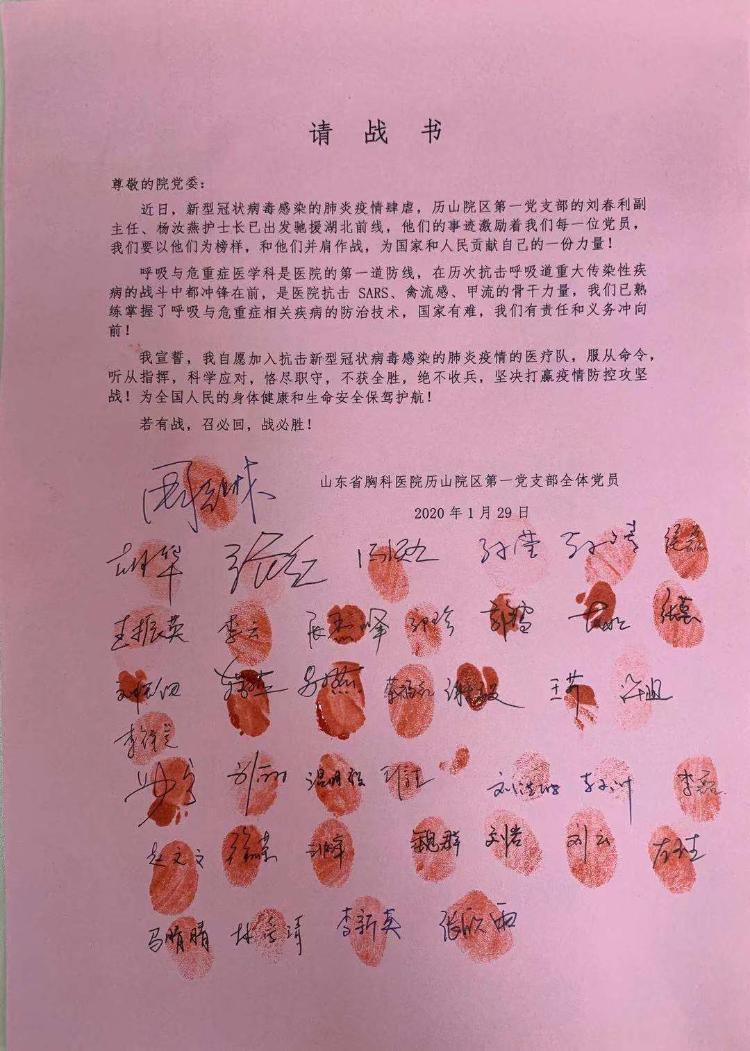 请战书
尊敬的院党委：
近日，新型冠状病毒感染的肺炎疫情肆虐，历山院区第一党支部的刘春利副
主任、杨汝燕护士长已出发驰援湖北前线，他们的事迹激励着我们每一位党员，
我们要以他们为榜样，和他们并肩作战，为国家和人民贡献自己的一份力量！
呼吸与危重症医学科是医院的第一道防线，在历次抗击呼吸道重大传染性疾
病的战斗中都冲锋在前，是医院抗击 SARS、禽流感、甲流的骨干力量，我们已熟
练掌握了呼吸与危重症相关疾病的防治技术，国家有难，我们有责任和义务冲向
前！
我宣誓，我自愿加入抗击新型冠状病毒感染的肺炎疫情的医疗队，服从命令，
听从指挥，科学应对，恪尽职守，不获全胜，绝不收兵，坚决打赢疫情防控攻坚
战！为全国人民的身体健康和生命安全保驾护航！
若有战，召必回，战必胜！
山东省胸科医院历山院区第一党支部全体党员
2020 年 1 月 29 日
张红 孙莹 孙靖
王振英 李云 张慕
王菊
温明霞 李磊
赵文文 徐燕 魏群 刘岩 刘云
马晴晴 李新英 张欣雨